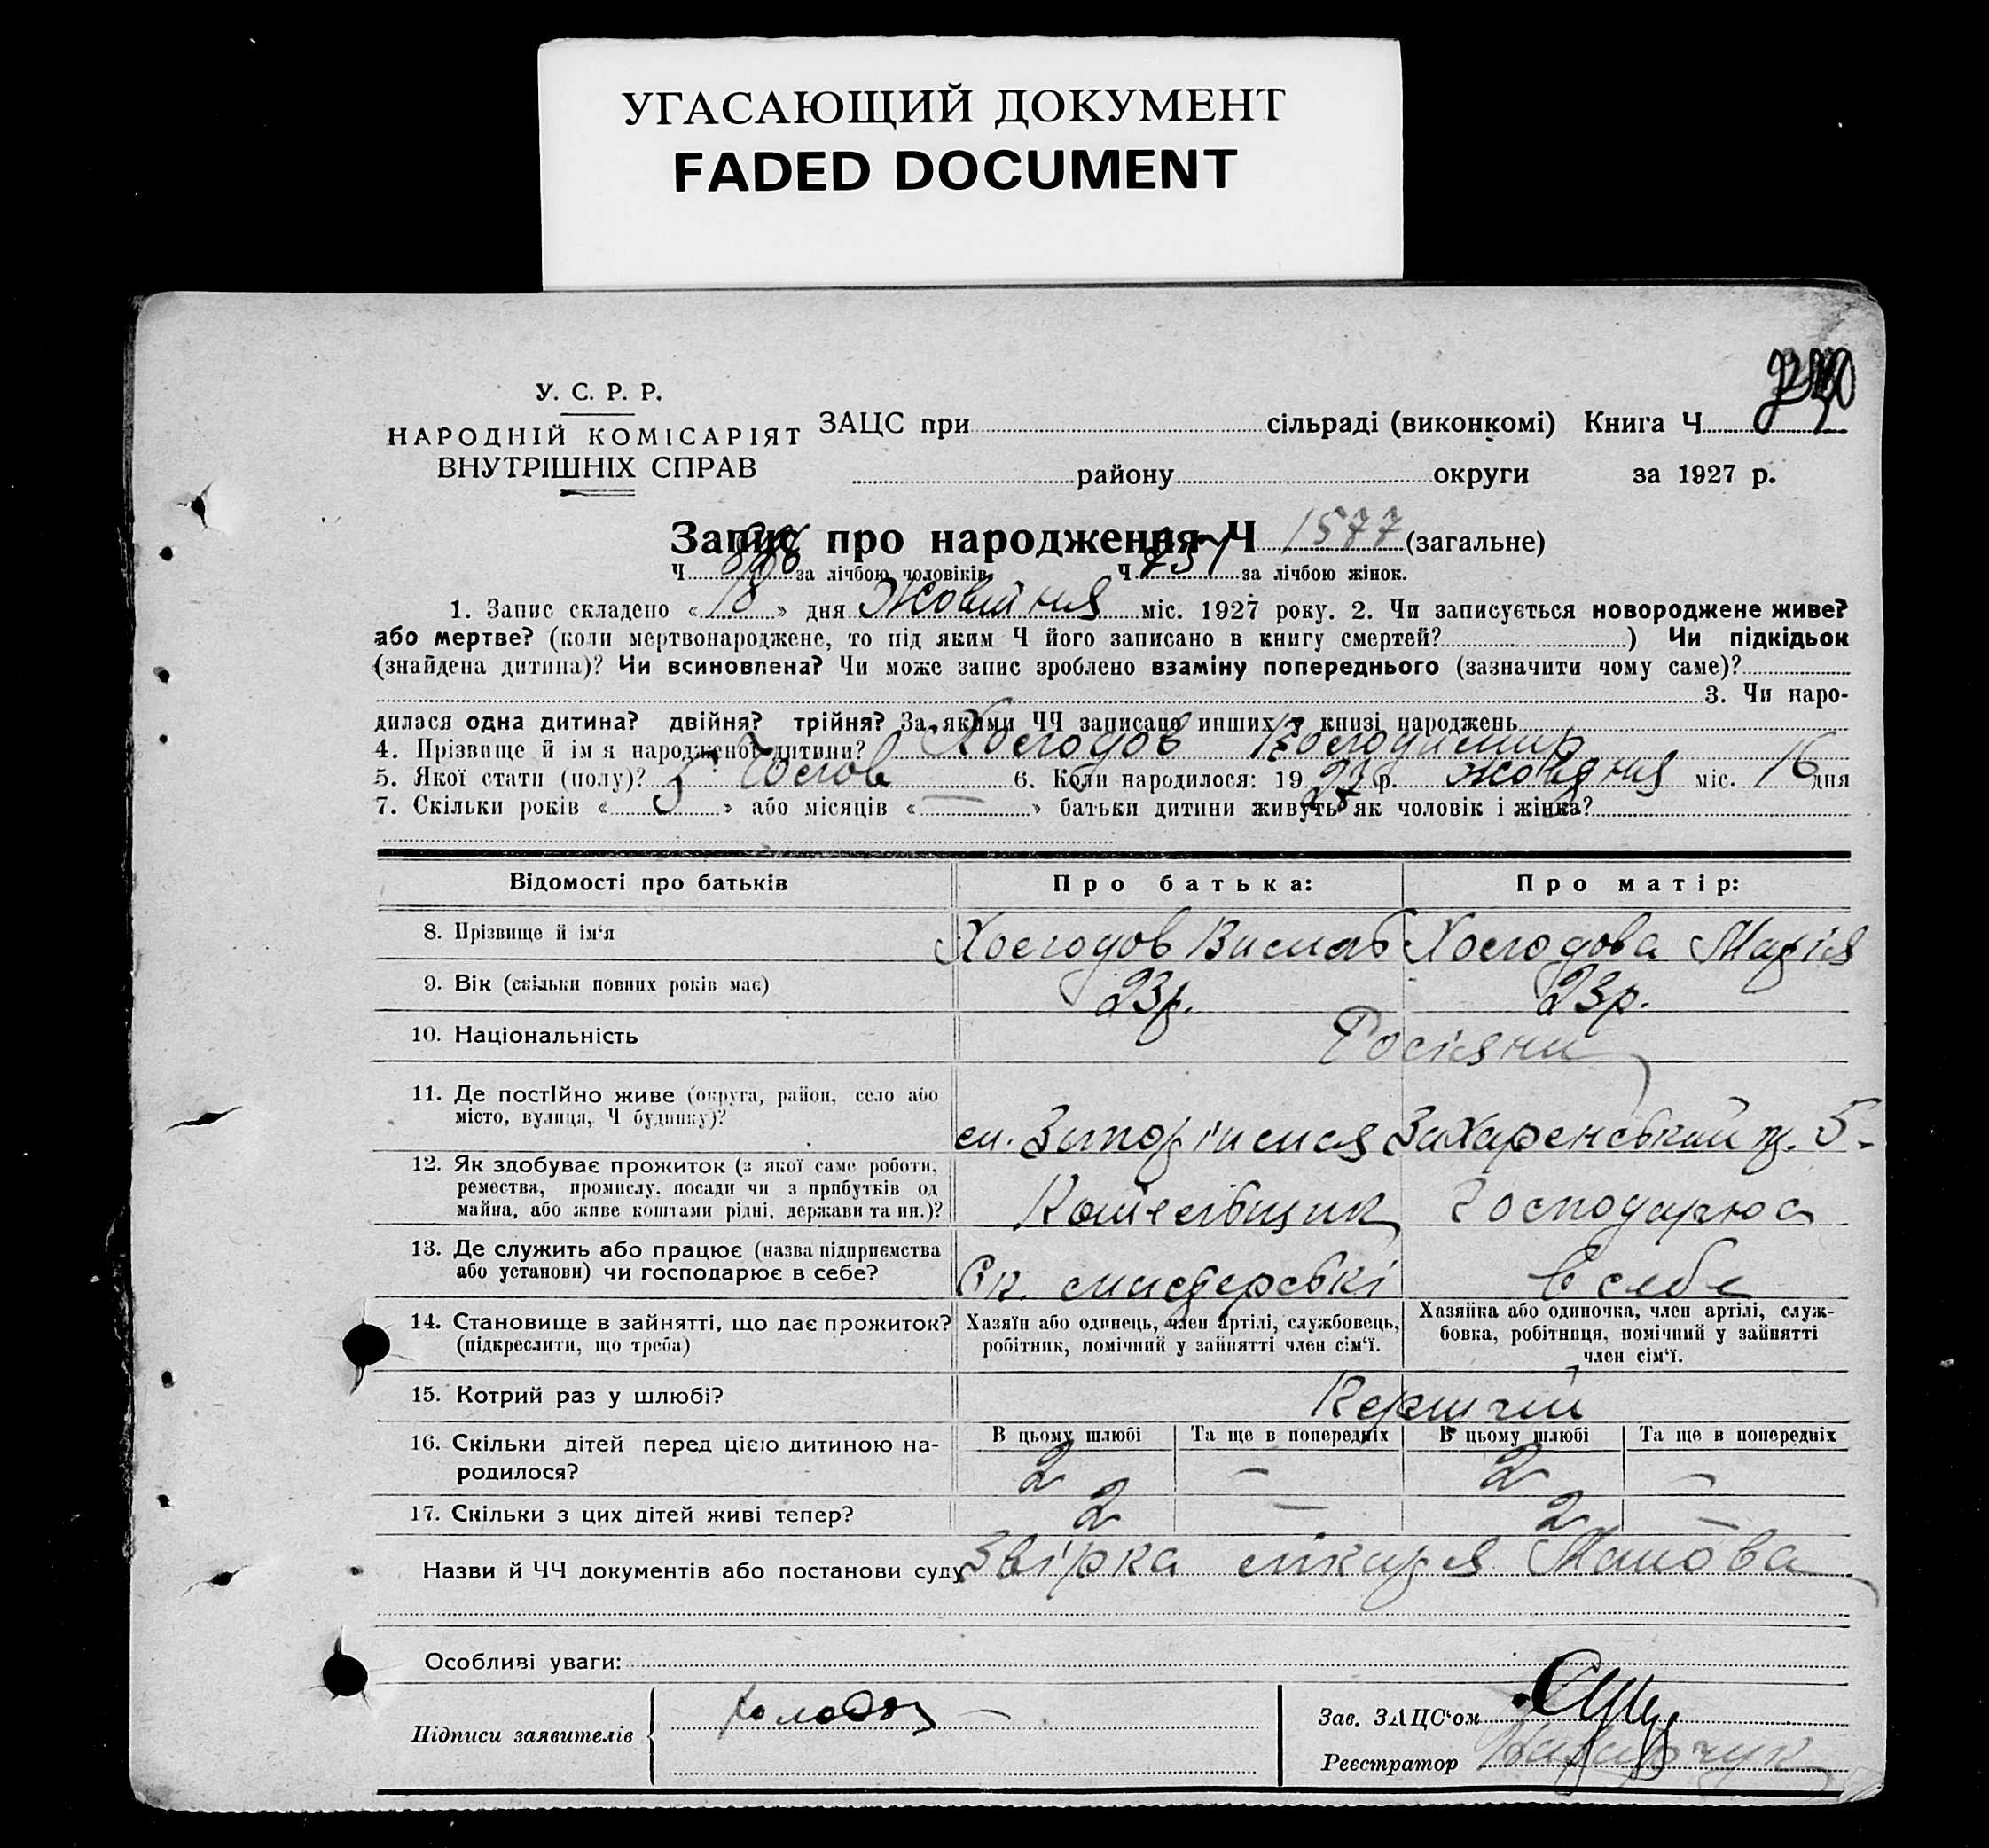 УГАСАЮЩИЙ ДОКУМЕНТ
FADED DOCUMENT
У. С. Р. Р.
НАРОДНІЙ КОМІСАРІЯТ
ВНУТРІШНІХ СПРАВ
ЗАЦС при сільраді (виконкомі) Книга Ч
району округи за 1927 р.
Запис про народження Ч 1577 (загальне)
Ч за лічбою чоловіків Ч за лічбою жінок.
1. Запис складено « 18 » дня Жовтня міс. 1927 року. 2. Чи записується новороджене живе?
або мертве? (коли мертвонароджене, то під яким Ч його записано в книгу смертей? ) Чи підкідьок
(знайдена дитина)? Чи всиновлена? Чи може запис зроблено взаміну попереднього (зазначити чому саме)?
3. Чи наро-
дилася одна дитина? двійня? трійня? За якими ЧЧ записано инших у книзі народжень
4. Прізвище й ім я народженої дитини? Холодов Володимир
5. Якої стати (полу)? Чолов 6. Коли народилося: 19 27 р. жовтня міс. 16 дня
7. Скільки років « 5 » або місяців « — » батьки дитини живуть як чоловік і жінка?
Відомості про батьків
Про батька:
Про матір:
8. Прізвище й ім‘я Холодов Холодова Марія
9. Вік (скільки повних років має) 23р. 23р.
10. Національність Росіяни
11. Де постійно живе (округа, район, село або
місто, вулиця, Ч будинку)?
12. Як здобуває прожиток (з якої саме роботи,
ремества, промислу, посади чи з прибутків од
майна, або живе коштами рідні, держави та ин.)?
Господарює
13. Де служить або працює (назва підприємства
або установи) чи господарює в себе?
майстерські в себе
14. Становище в зайнятті, що дає прожиток?
(підкреслити, що треба)
Хазяїн або одинець, член артілі, службовець,
робітник, помічний у зайнятті член сім‘ї.
Хазяйка або одиночка, член артілі, служ-
бовка, робітниця, помічний у зайнятті
член сім‘ї.
15. Котрий раз у шлюбі? Перший
16. Скільки дітей перед цією дитиною на-
родилося?
В цьому шлюбі Та ще в попередніх В цьому шлюбі Та ще в попередніх
2 — 2 —
17. Скільки з цих дітей живі тепер? 2 — 2 —
Назви й ЧЧ документів або постанови суду Звірка лікаря
Особливі уваги:
Підписи заявителів
Зав. ЗАЦС‘ом
Реєстратор